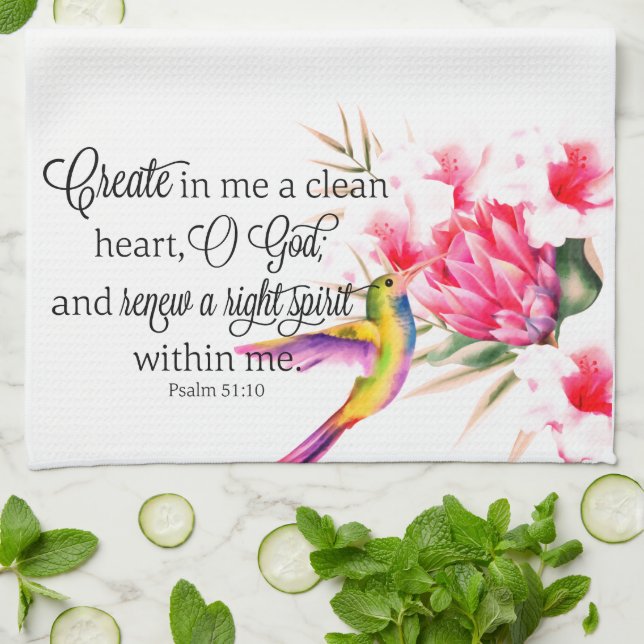 Create in me a clean
heart, O God;
and renew a right spirit
within me.
Psalm 51:10